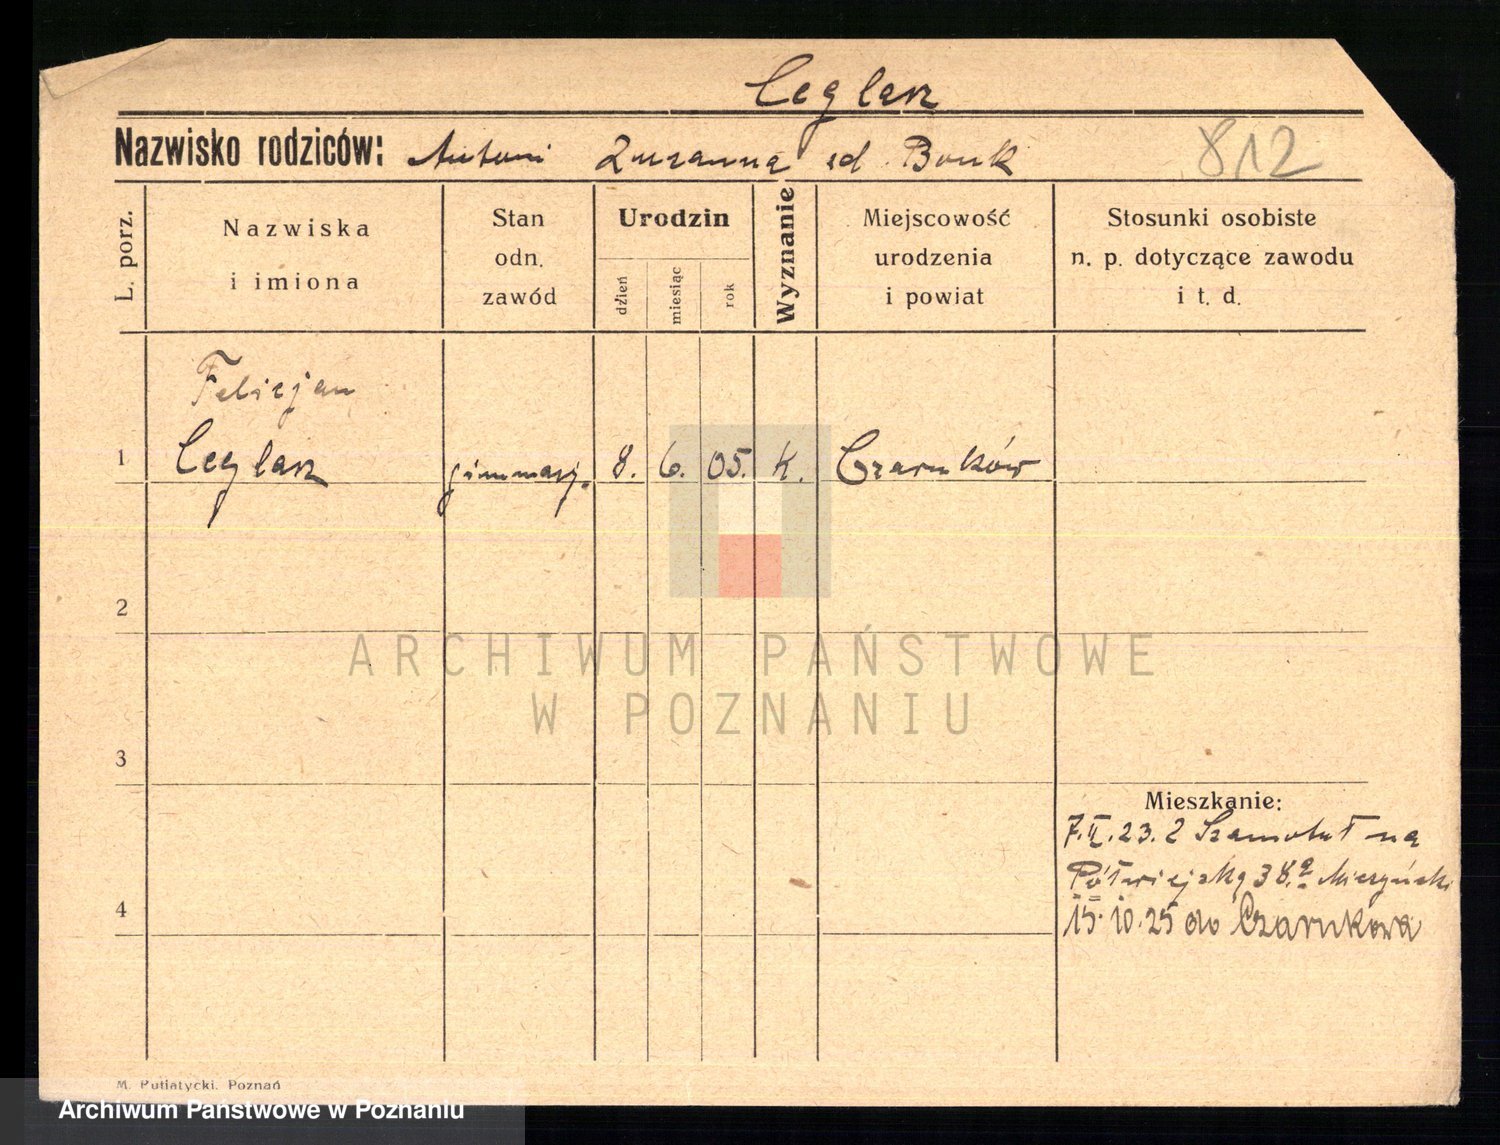 Ceglarz
Nazwisko rodziców: Antoni Zuzanna zd Bonk
812
L. porz.
Nazwiska
i imiona
Stan
odn.
zawód
Urodzin
dzień
miesiąc
rok
Wyznanie
Miejscowość
urodzenia
i powiat
Stosunki osobiste
n. p. dotyczące zawodu
i t. d.
Felicjan
1 Ceglarz gimnazj. 8. 6. 05. K. Czarnków
2
ARCHIWUM PAŃSTWOWE
W POZNANIU
3
Mieszkanie:
7.II.23. z Szamotuł na
Półwiejską 38.a
15.10.25 do Czarnkowa
4
M. Putiatycki, Poznań
Archiwum Państwowe w Poznaniu